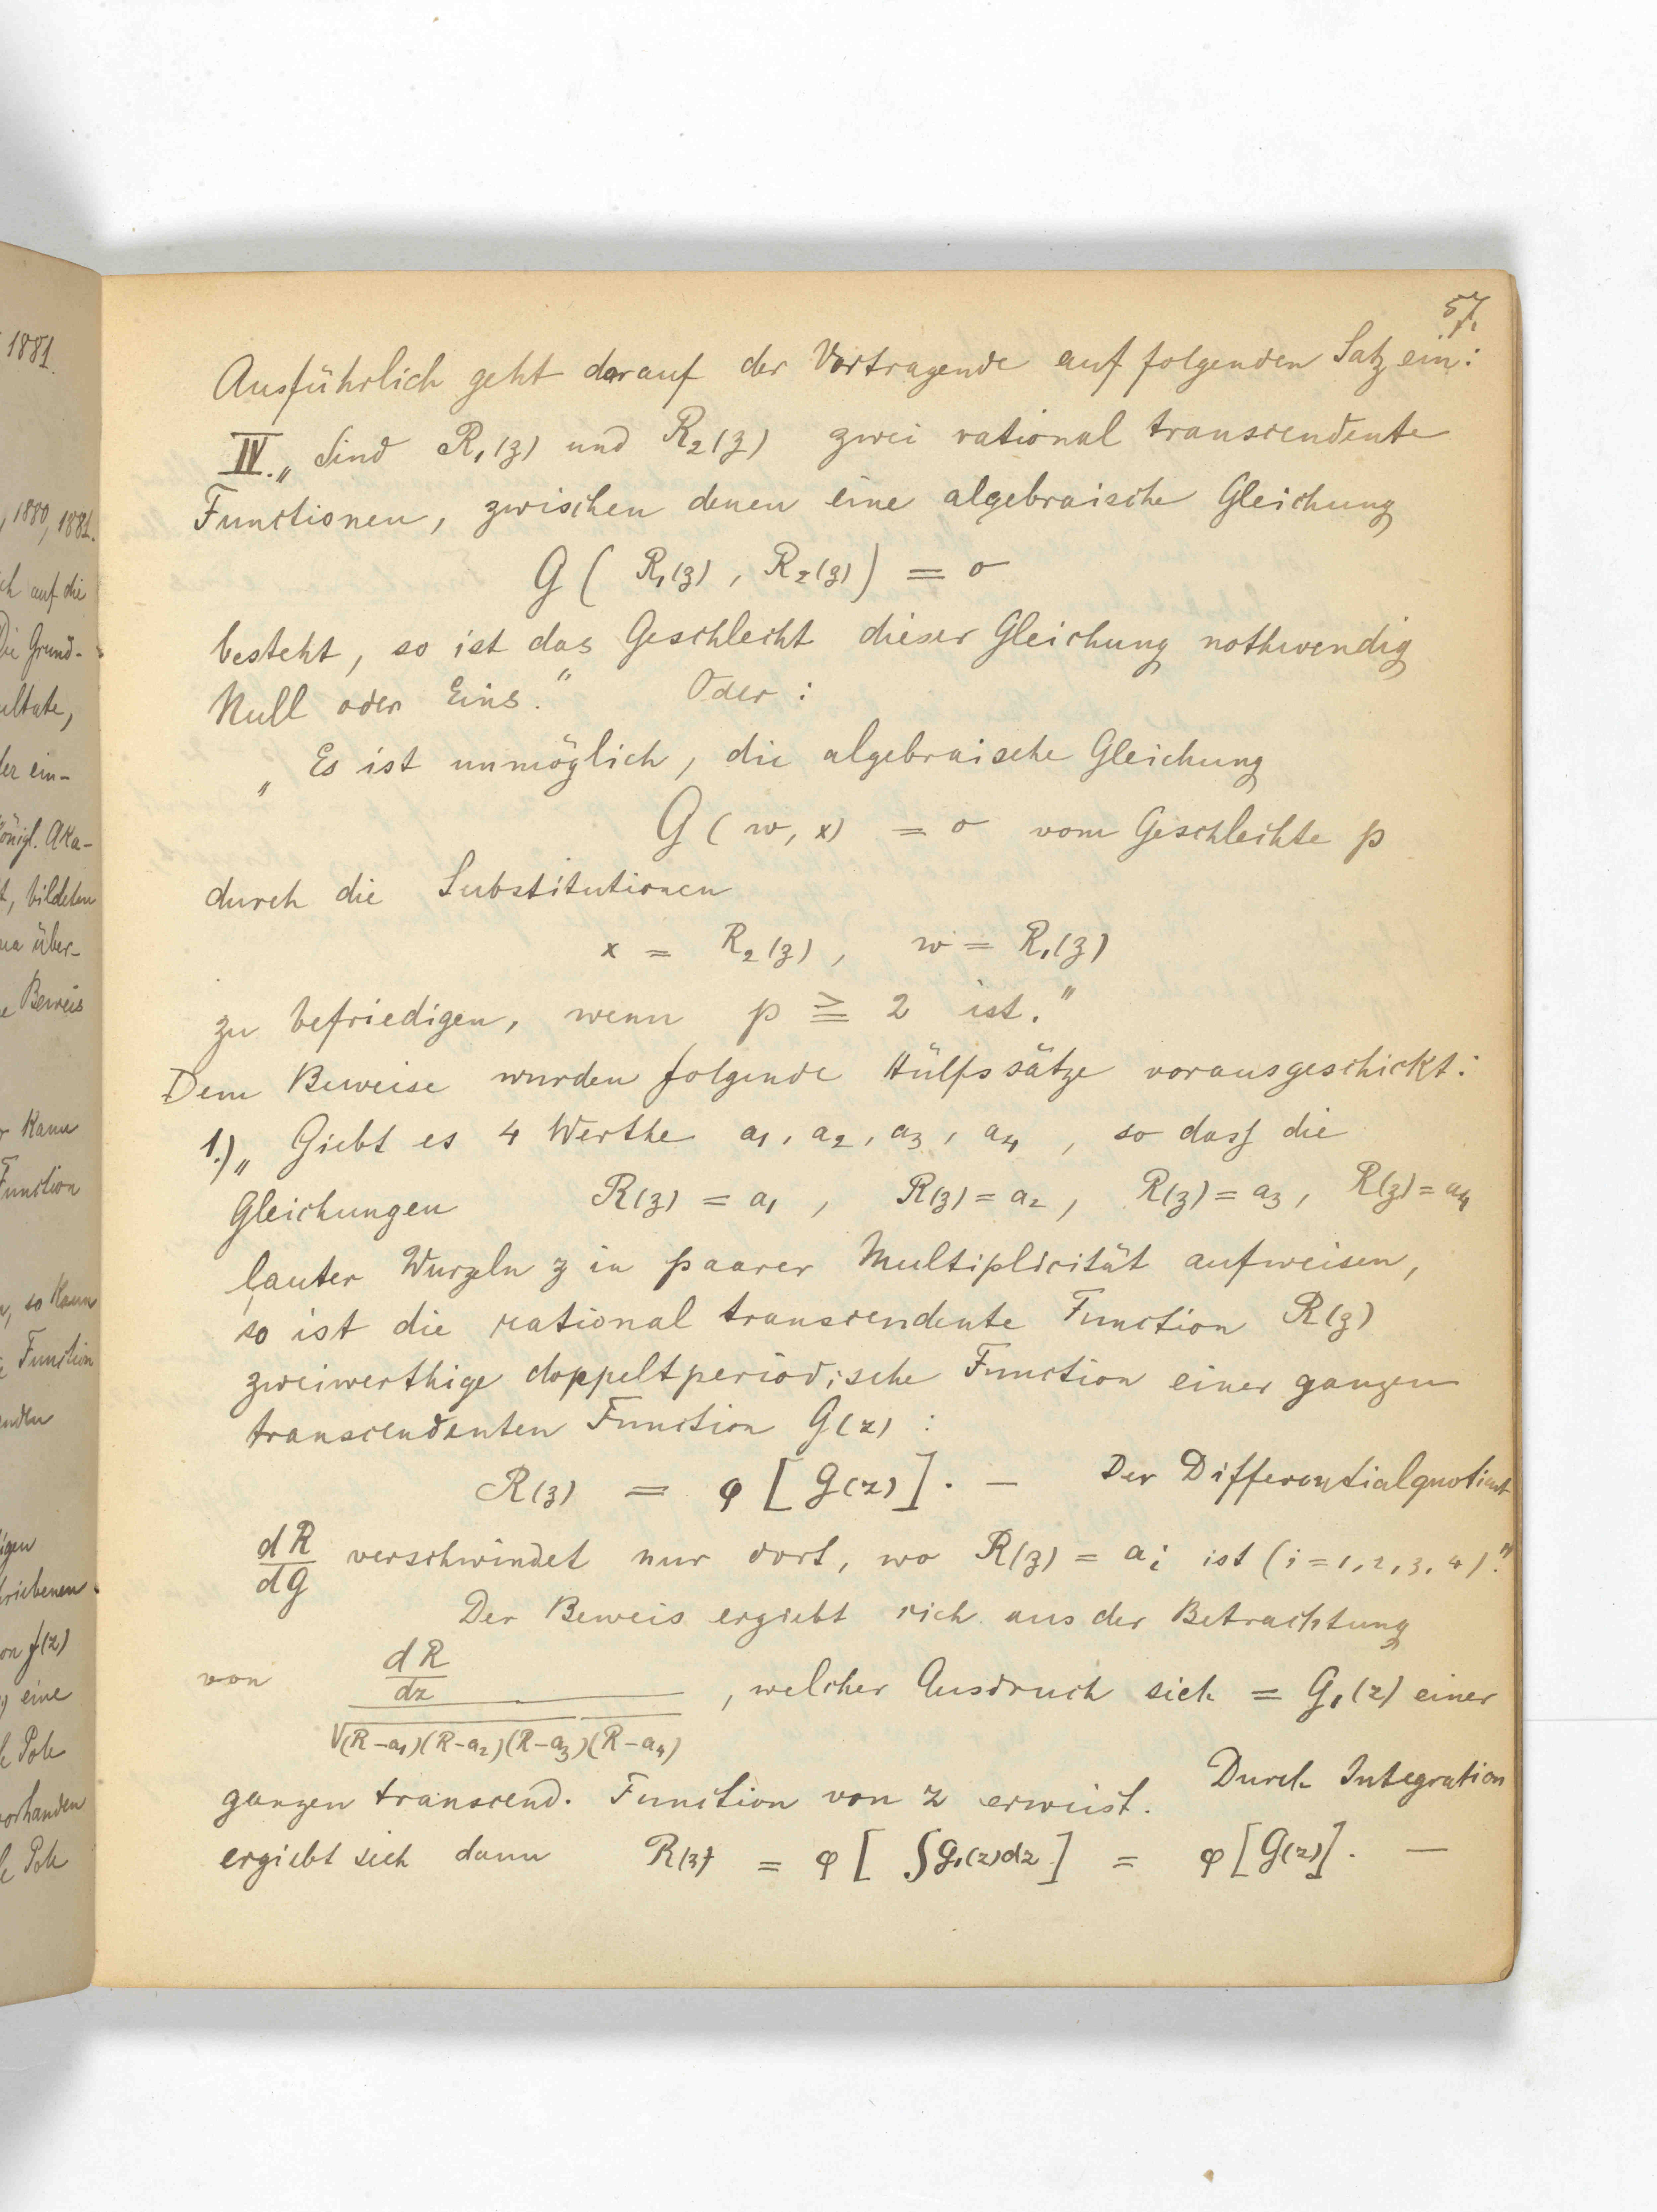 1881.
, 1880, 1881.
auf die
Die Grund-
ultate,
der ein-
Königl. Aka-
t, bildeten
über-
Beweis
Kann
Function
, so Kann
Function
eine
Pole
vorhanden
Pole
57.
Ausführlich geht darauf der Vortragende auf folgenden Satz ein:
IV. „Sind R₁(z) und R₂(z) zwei rational transcendente
Functionen, zwischen denen eine algebraische Gleichung
G ( R₁(z) , R₂(z) ) = 0
besteht, so ist das Geschlecht dieser Gleichung nothwendig
Null oder Eins." Oder :
„Es ist unmöglich, die algebraische Gleichung
G ( w, x) = 0 vom Geschlechte p
durch die Substitutionen
x = R₂(z) , w = R₁(z)
zu befriedigen, wenn p ≧ 2 ist."
Dem Beweise wurden folgende Hülfssätze vorausgeschickt:
1.) „Giebt es 4 Werthe a₁, a₂, a₃, a₄ , so dass die
Gleichungen R(z) = a₁ , R(z) = a₂ , R(z) = a₃ , R(z) = a₄
lauter Wurzeln z in paarer Multiplicität aufweisen,
so ist die rational transcendente Function R(z)
zweiwerthige doppeltperiodische Function einer ganzen
transcendenten Function G(z) :
R(z) = φ [ G(z) ] . — Der Differentialquotient
dR/dG verschwindet nur dort, wo R(z) = aᵢ ist (i = 1, 2, 3, 4)."
Der Beweis ergiebt sich aus der Betrachtung
von dR/dz / √(R-a₁)(R-a₂)(R-a₃)(R-a₄) , welcher Ausdruck sich = G₁(z) einer
ganzen transcend. Function von z erweist. Durch Integration
ergiebt sich dann R(z) = φ [ ∫G₁(z)dz ] = φ [G(z)] . —